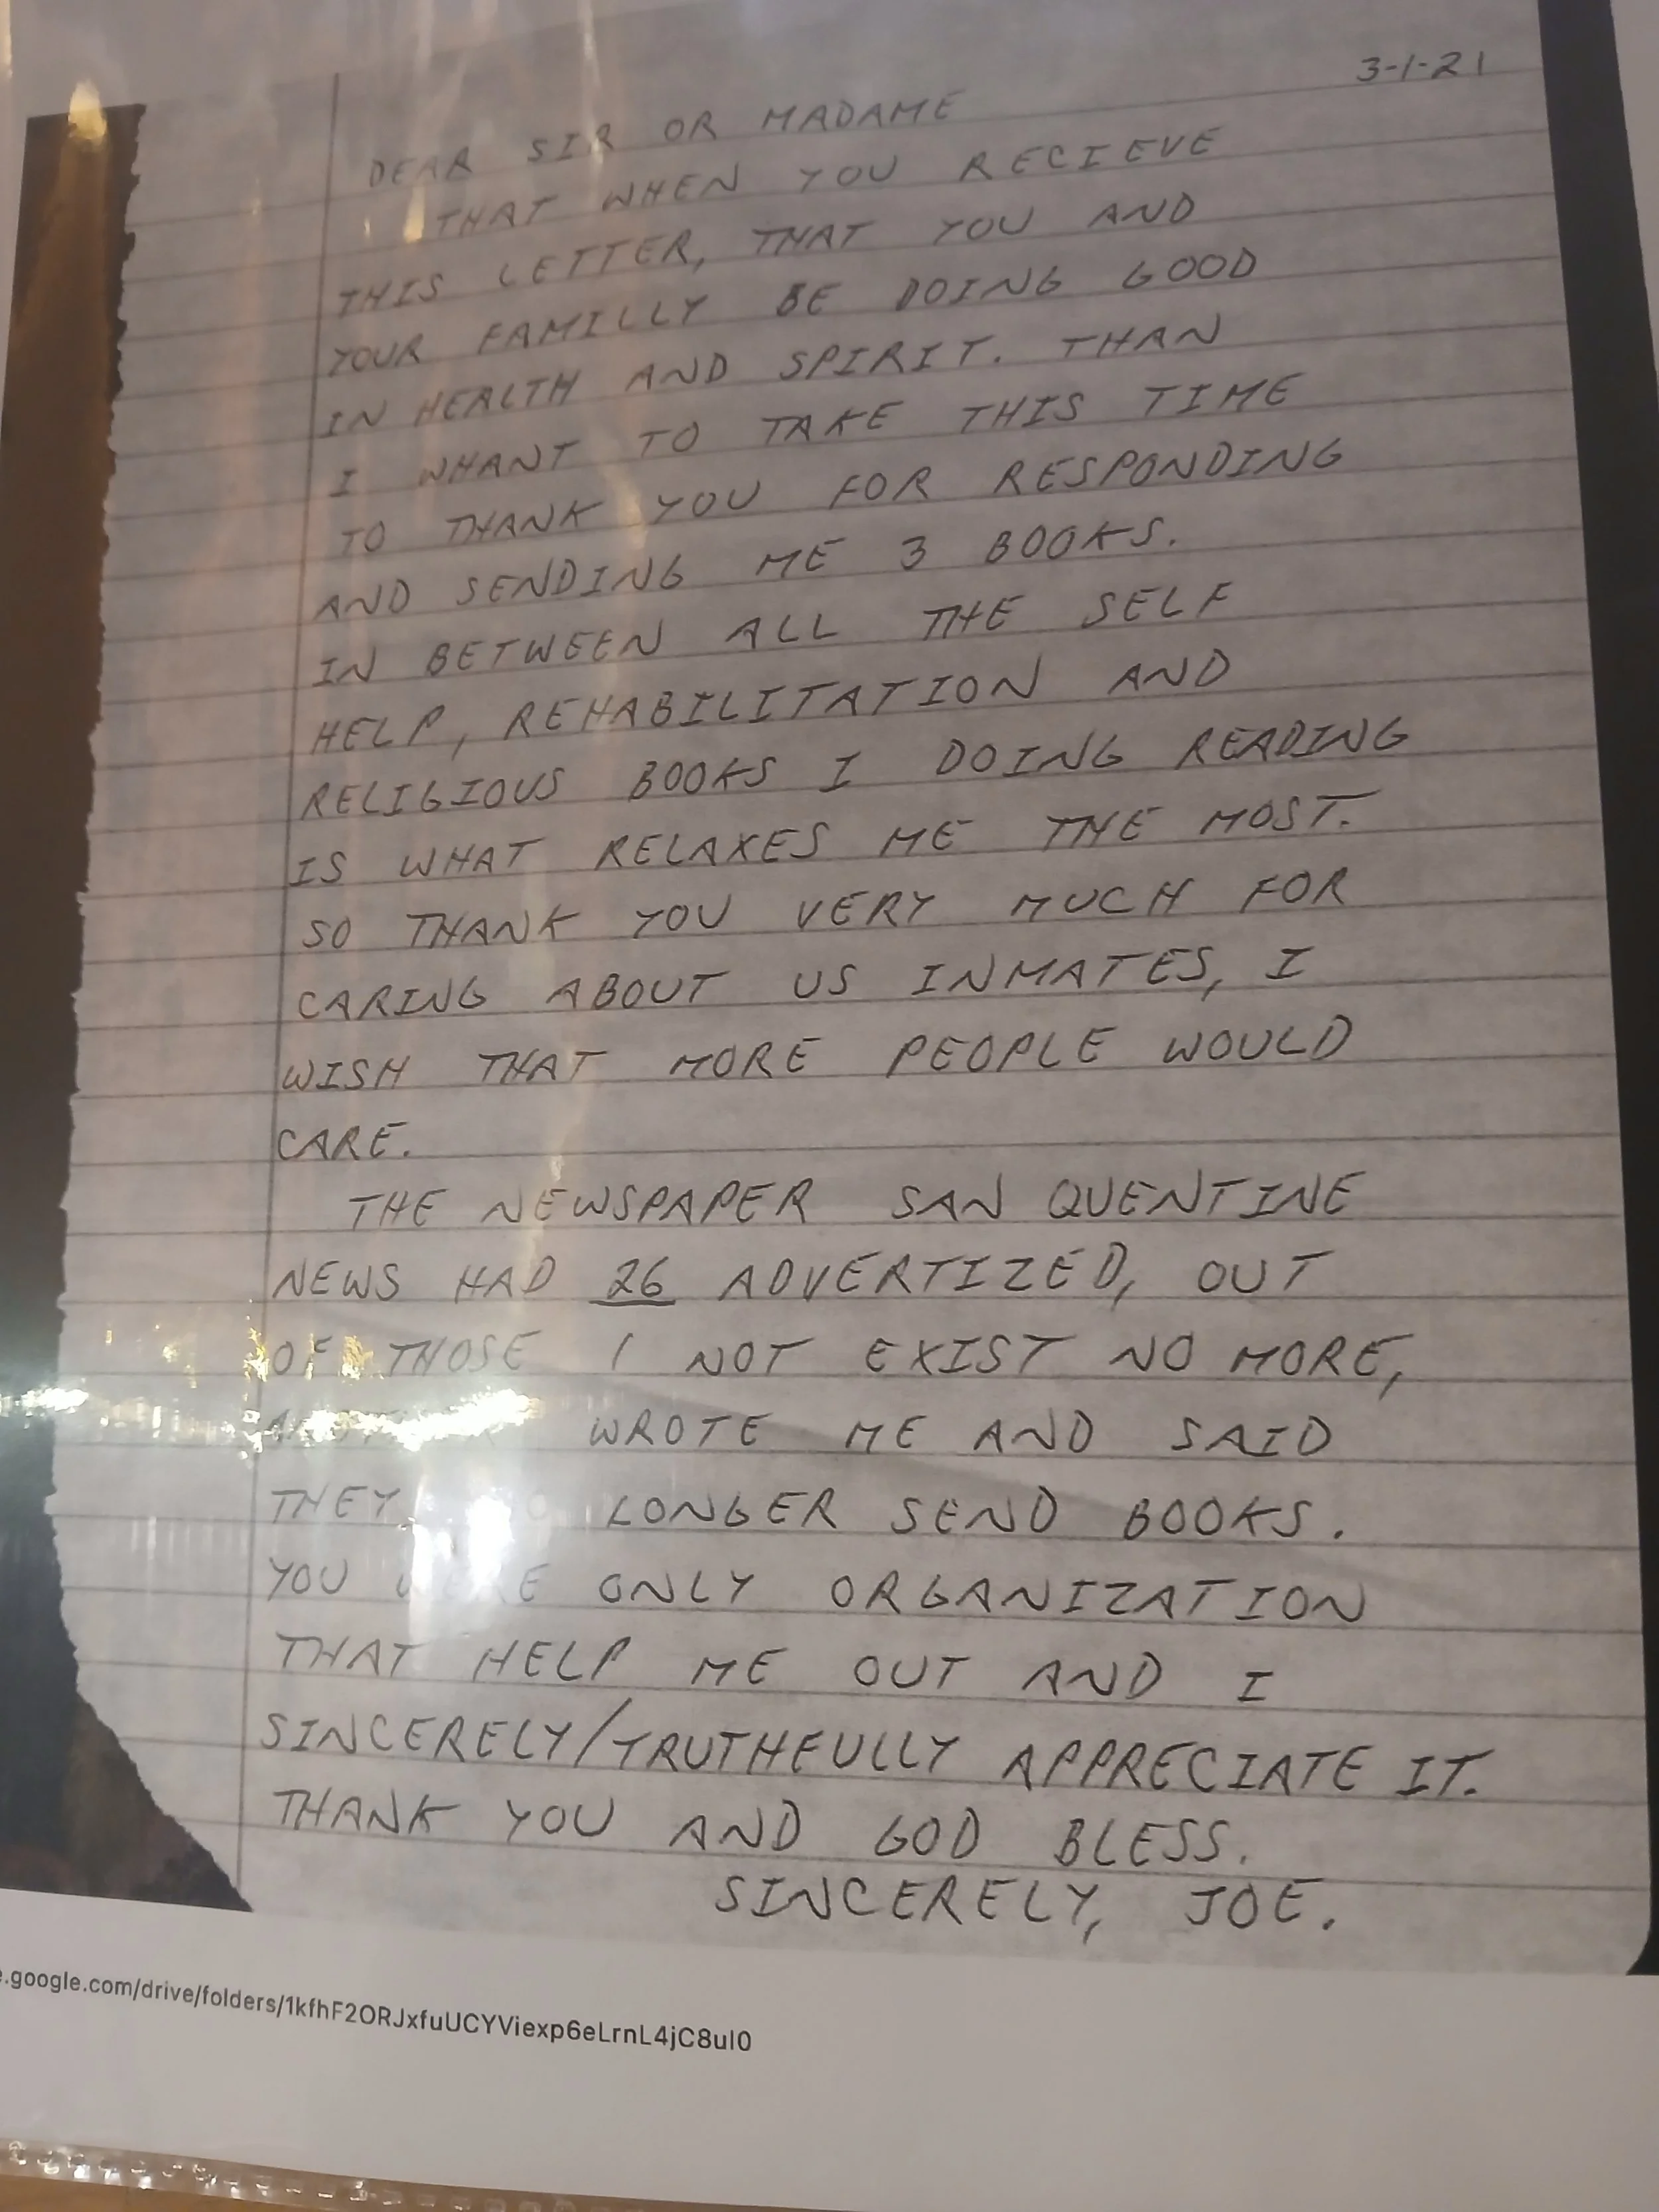 3-1-21
DEAR SIR OR MADAME
THAT WHEN YOU RECIEVE
THIS LETTER, THAT YOU AND
YOUR FAMILLY BE DOING GOOD
IN HEALTH AND SPIRIT. THAN
I WHANT TO TAKE THIS TIME
TO THANK YOU FOR RESPONDING
AND SENDING ME 3 BOOKS.
IN BETWEEN ALL THE SELF
HELP, REHABILITATION AND
RELIGIOUS BOOKS I DOING READING
IS WHAT RELAXES ME THE MOST.
SO THANK YOU VERY MUCH FOR
CARING ABOUT US INMATES, I
WISH THAT MORE PEOPLE WOULD
CARE.
THE NEWSPAPER SAN QUENTINE
NEWS HAD 26 ADVERTIZED, OUT
OF THOSE 1 NOT EXIST NO MORE,
WROTE ME AND SAID
THEY LONGER SEND BOOKS.
YOU WERE ONLY ORGANIZATION
THAT HELP ME OUT AND I
SINCERELY/TRUTHEFULLY APPRECIATE IT.
THANK YOU AND GOD BLESS.
SINCERELY, JOE.
e.google.com/drive/folders/1kfhF2ORJxfuUCYViexp6eLrnL4jC8ul0